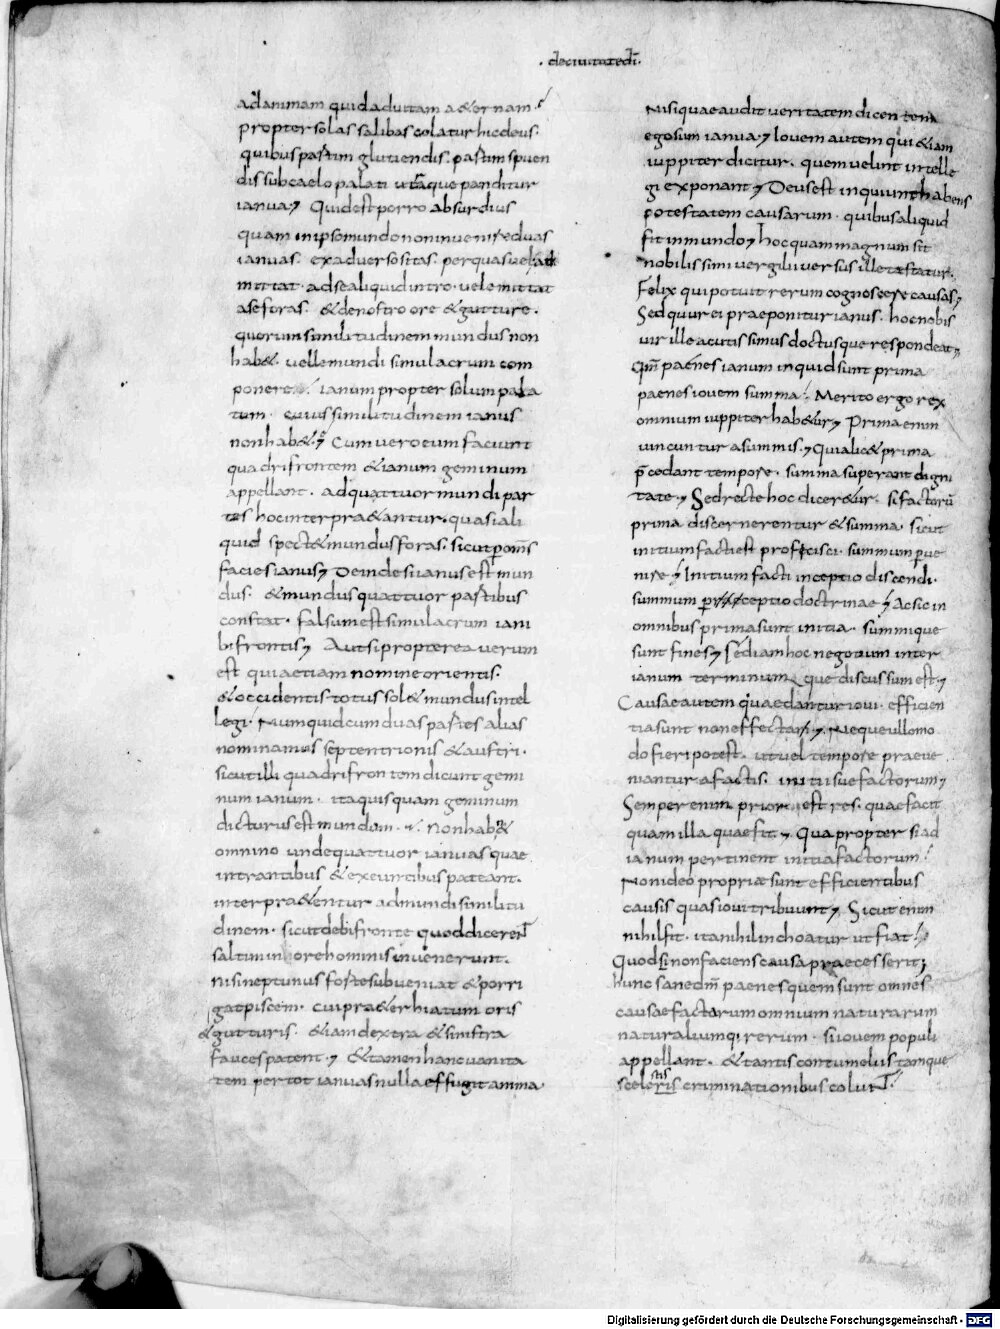 . deciuitatedi.
adanimam quid aduitam aeternam.
propter solas salibas colatur hic deus.
quibus partim glutiendis. partim spuen
dis sub caelo palati utraque panditur
ianua; Quid est porro absurdius
quam inipsomundo non inuenire duas
ianuas. ex aduerso sitas. per quas uel ad
mittat. adse aliquid intro. uel emittat
ase foras. & denostro ore & gutture.
quorum similitudinem mundus non
hab&. uelle mundi simulacrum com
ponere. ianum propter solum pala
tum. cuius similitudinem ianus
non hab&; Cum uero eum faciunt
quadrifrontem & ianum geminum
appellant. ad quattuor mundi par
tes hoc interpraetantur. quasi ali
quid spect& mundus foras. sicut p oms
facies ianus; Deinde si ianus est mun
dus. & mundus quattuor partibus
constat. falsum est simulacrum iani
bifrontis; Aut si propterea uerum
est quia etiam nomine orientis.
& occidentis. totus sol& mundus intel
legi. Numquid cum duas partes alias
nominamus septentrionis & austri.
sicut illi quadrifrontem dicunt gemi
num ianum. ita quisquam geminum
dicturus est mundum. Non hab&
omnino unde quattuor ianuas quae
intrantibus & exeuntibus pateant.
interpraetentur ad mundi similitu
dinem. sicut de bifronte quod dicerent
saltim in ore hominis inuenerunt.
nisi neptunus forte subueniat & porri
gat piscem. cui praeter hiatum oris
& gutturis. etiam dextra & sinistra
fauces patent; & tamen hanc uanita
tem per tot ianuas nulla effugit anima
nisi quae audit ueritatem dicentem
ego sum ianua; Iouem autem qui etiam
iuppiter dicitur. quem uelint intelle
gi exponant; Deus est inquiunt habens
potestatem causarum. quibus aliquid
fit in mundo; hoc quam magnum sit
nobilissimi uergilii uersus ille testatur.
Felix qui potuit rerum cognoscere causas;
Sed qur ei praeponitur ianus. hoc nobis
uir ille acutissimus doctusque respondeat;
Qm paenes ianum inquid sunt prima
paenes iouem summa. Merito ergo rex
omnium iuppiter habetur; Prima enim
uincuntur a summis; Quia lic& prima
p̄cedant tempore. summa superant digni
tate; Sed recte hoc diceretur. si factorū
prima discernerentur & summa. sicut
initium facti est proficisci. summum p ue
nire; Initium facti inceptio discendi.
summum p ceptio doctrinae; Ac sic in
omnibus prima sunt initia. summique
sunt fines; Sed iam hoc negotium inter
ianum terminumque discussum est;
Causae autem quae dantur ioui. efficien
tia sunt non effecta; Neque ullo mo
do fieri potest. ut uel tempore praeue
niantur a factis. initiisue factorum;
Semper enim prior est res. quae facit
quam illa quae fit; Qua propter si ad
ianum pertinent initia factorum.
Non ideo propriae sunt efficientibus
causis quas ioui tribuunt; Sicut enim
nihil fit. ita nihil inchoatur ut fiat.
Quod si non faciens causa praecesserit;
hunc sane dm paenes quem sunt omnes
causae factarum omnium naturarum
naturaliumq; rerum. si iouem populi
appellant. & tantis contumeliis tamque
sceleris stis criminationibus colunt.
Digitalisierung gefördert durch die Deutsche Forschungsgemeinschaft - DFG